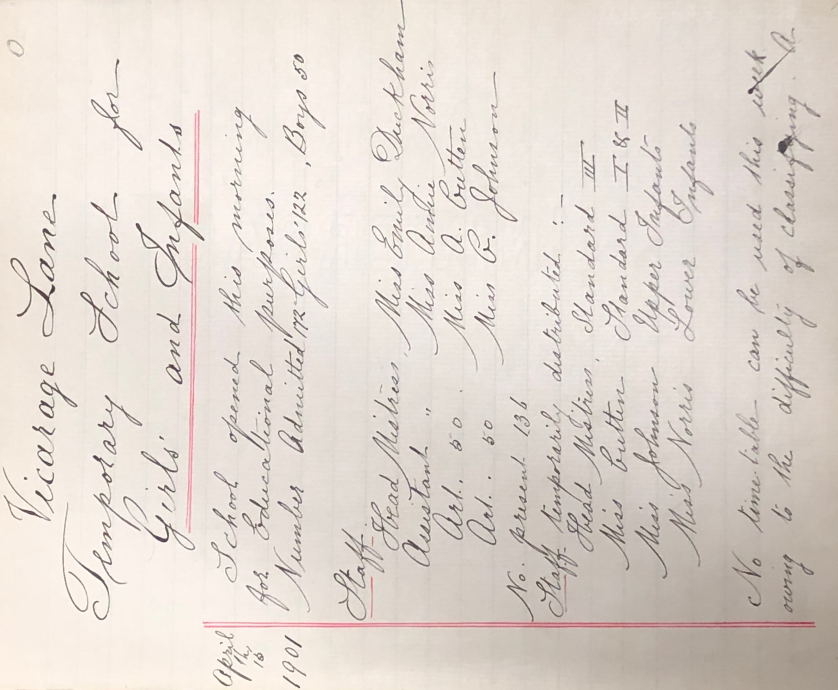 Vicarage Lane
Temporary School for
Girls and Infants
April
16th
1901
School opened this morning
for Educational purposes.
Number Admitted 172 Girls 122, Boys 50
Staff
Head Mistress. Miss Emily Duckham
Assistant " Miss Annie Norris
Art. 50. Miss A. Cutten
Art. 50 Miss C. Johnson
No. present 136
Staff temporarily distributed :—
Head Mistress. Standard III
Miss Cutten Standard I & II
Miss Johnson Upper Infants
Miss Norris Lower Infants
No time table can be used this week
owing to the difficulty of classifying. A